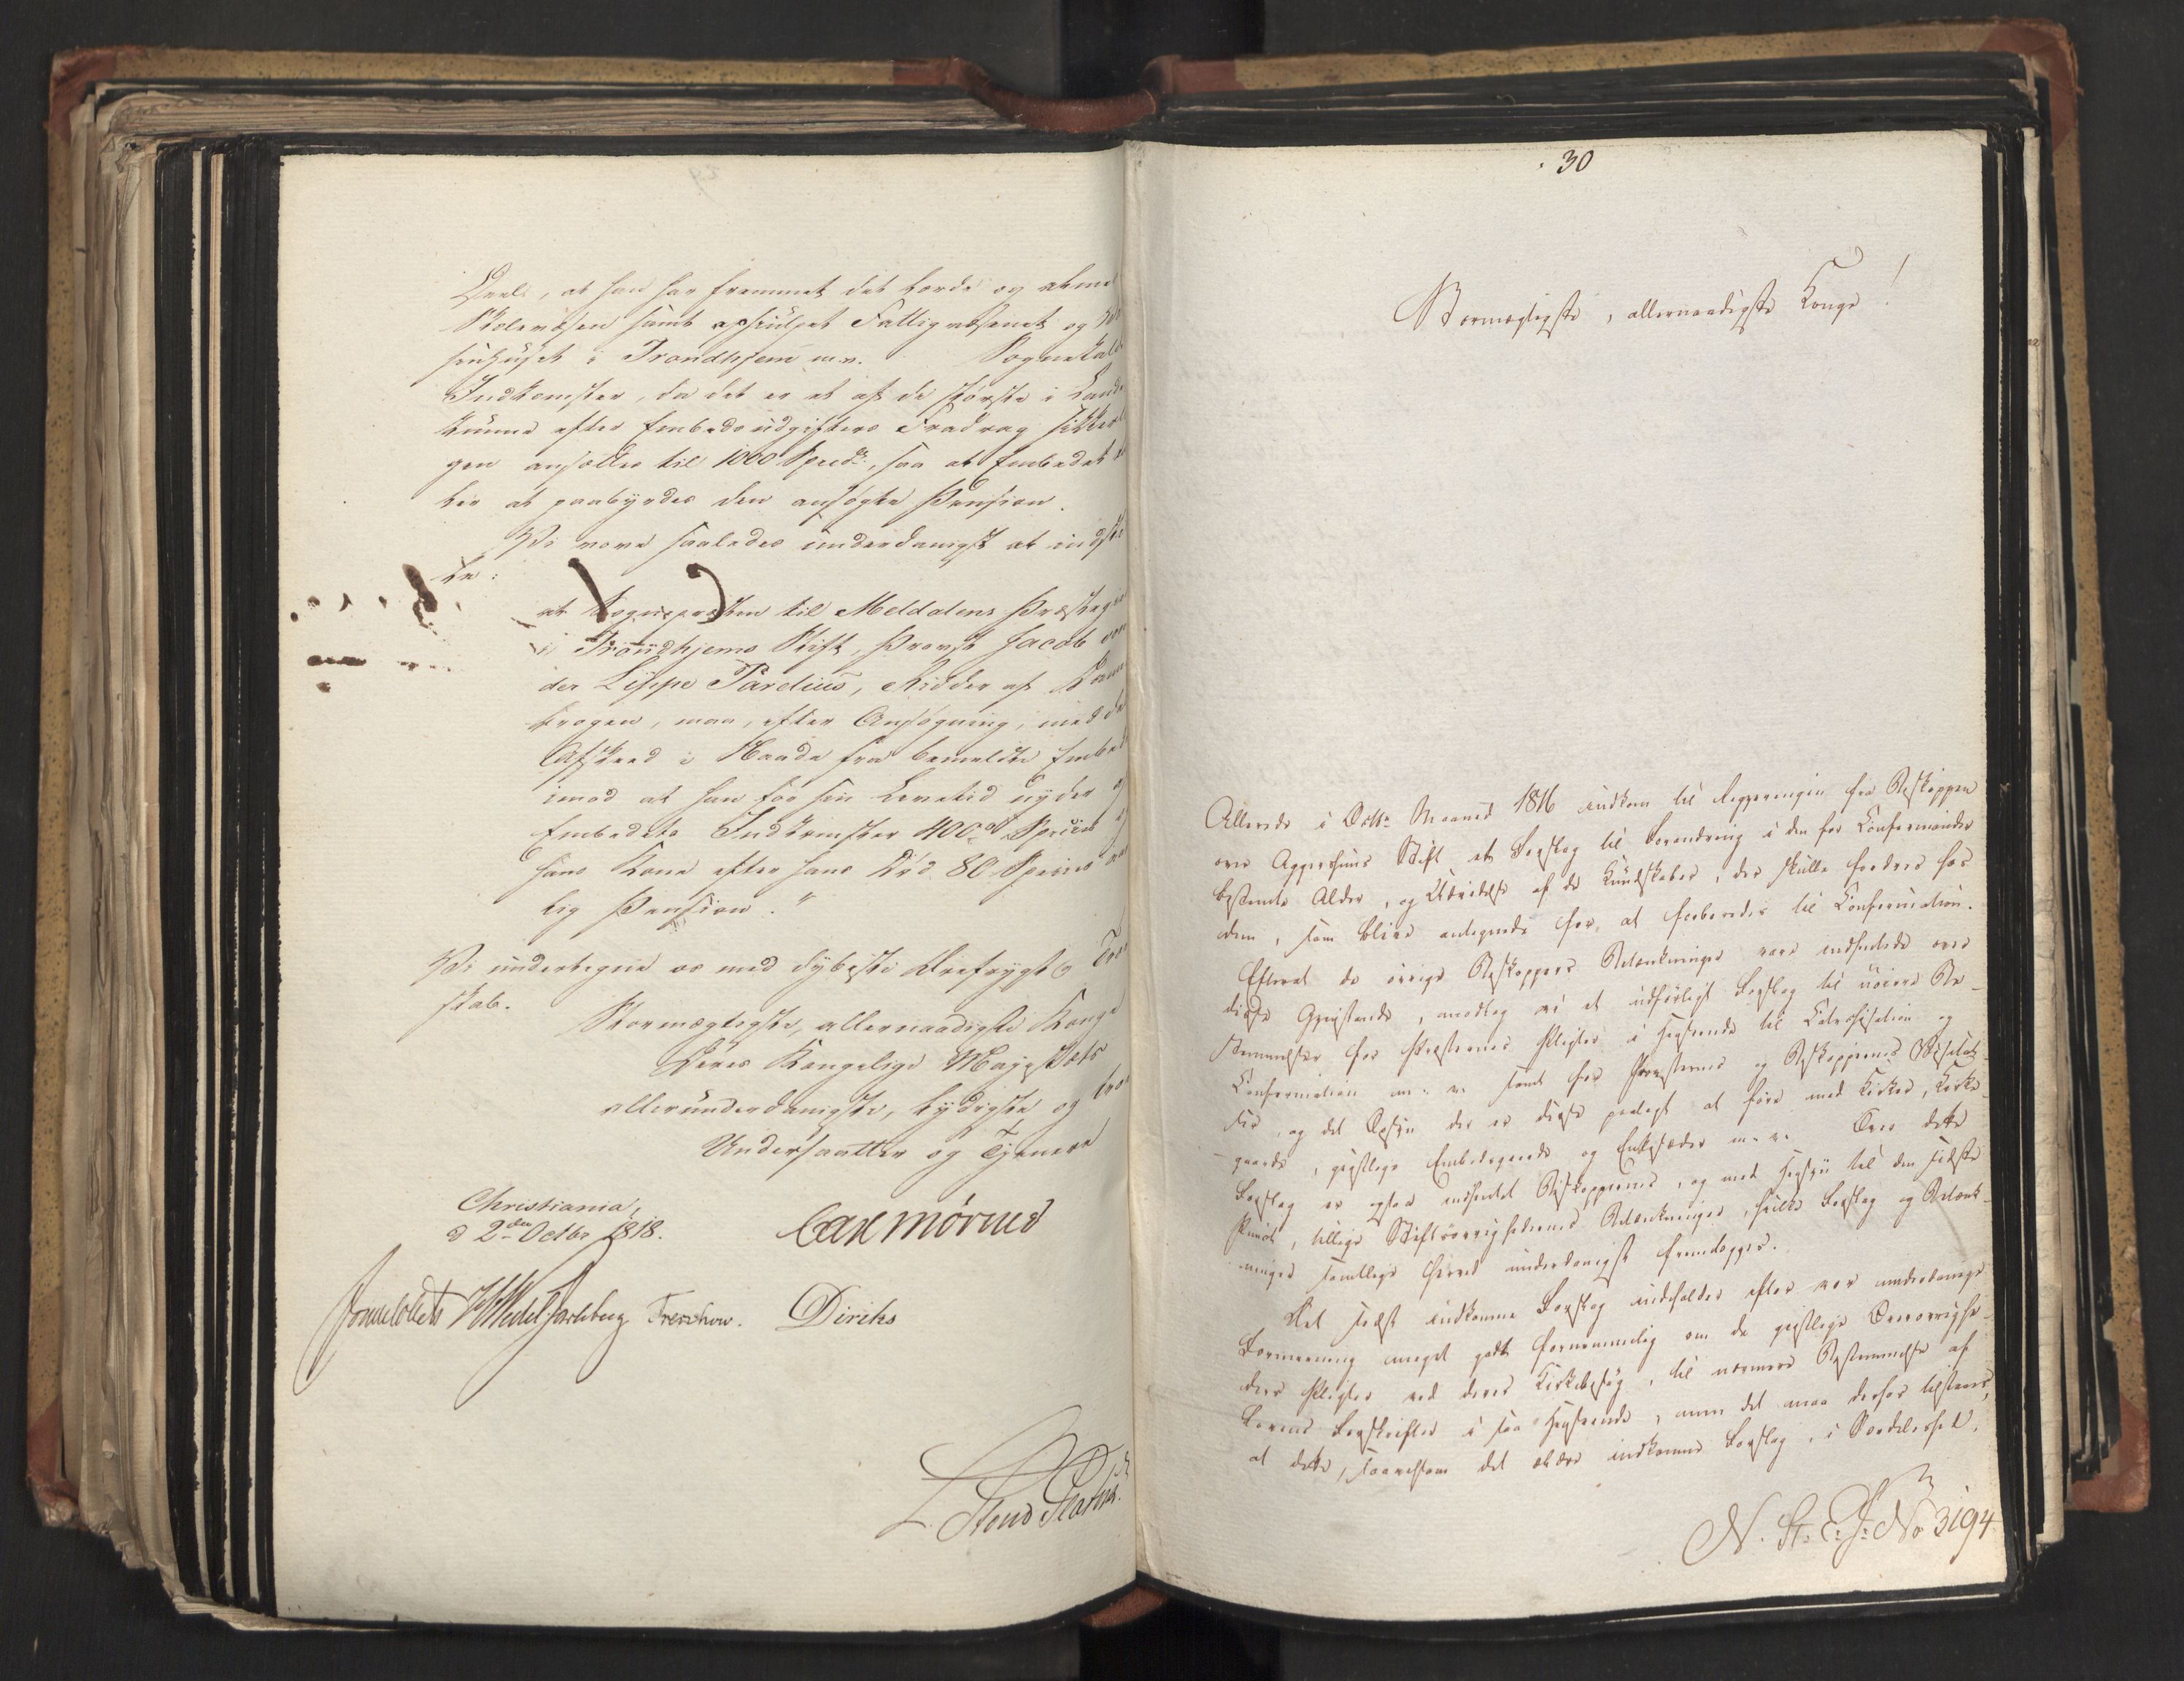 Deels, at han har fremmet det lærde og almue
Skolevæsen samt ophiulpet Fattigvæsenet og
sindhuset i Trondhjem m. v. Sognekald
Indkomster, da det er et af de største i Land
kunne efter Embedsudgifters Fradrag sikker
gen ansættes til 1000 Specd., saa at Embedet
ler at paabyrdes den ansøgte Pension.
Vi vove saaledes underdanigst at indstil
le:
at Sognepræsten til Meldalens Præstegi
i Trondhjems Stift, Provst Jacob von
der Lippe Parelius, Ridder af Danne
brogen, maa, efter Ansøgning, med
Afsked i Naade fra bemeldte Embed
imod at han for sin Levetid nyder
Embedets Indkomster 400 Specier
hans Kone efter hans Død 80 Specier aar
lig Pension."
Vi undertegne os med dybeste Ærefrygt og Tro
skab.
Stormægtigste, allernaadigste Konge
Deres Kongelige Majestæts
allerunderdanigste, lydigste og troe
Undersaatter og Tjenere
Christiania,
d 2den Octbr 1818.
Carl Mörner
Sommerhielm HWedel Jarlsberg Treschow. Diriks
L. Stoud Platou.
30
Stormægtigste, allernaadigste Konge!
Allerede i Octbr Maaned 1816 indkom til Regjeringen fra Biskoppen
over Aggershuus Stift et Forslag til Forandring i den for Confirmander
bestemte Alder, og Udvidelse af de Kundskaber, der skulle fordres hos
dem, som blive antegnede for at forberedes til Confirmation.
Efterat de øvrige Biskoppers Betænkninger vare indhentede over
disse Gjenstande, modtog vi et udførligt Forslag til nøiere Be-
stemmelser for Præsternes Pligter i Henseende til Catechisation og
Confirmation m. v. samt for Provsternes og Biskoppernes Visitat-
ser, og det Opsyn der er disse paalagt at føre med Kirker, Kirke-
gaarde, geistlige Embedsgaarde og Enkesæder m. v. Over dette
Forslag er efter indhentet Biskoppernes, og med Hensyn til den sidste
Punct, tillige Stiftsøvrighedernes Betænkninger, hvilke Forslag og Betænk-
ninger samtlige herved underdanigst fremlægges.
Det sidst indkomne Forslag indeholder efter vor underdanige
Formening meget godt fornemmelig om de geistlige Overøvrighe-
ders Pligter ved deres Kirkebesøg, til nærmere Bestemmelse af
Lovens Forskrifter i saa Henseende, men det maa derfor tilstaaes,
at dette, saavelsom det ældre indkomne Forslag, i Særdeleshed,
N. St. C. J. No 3194.